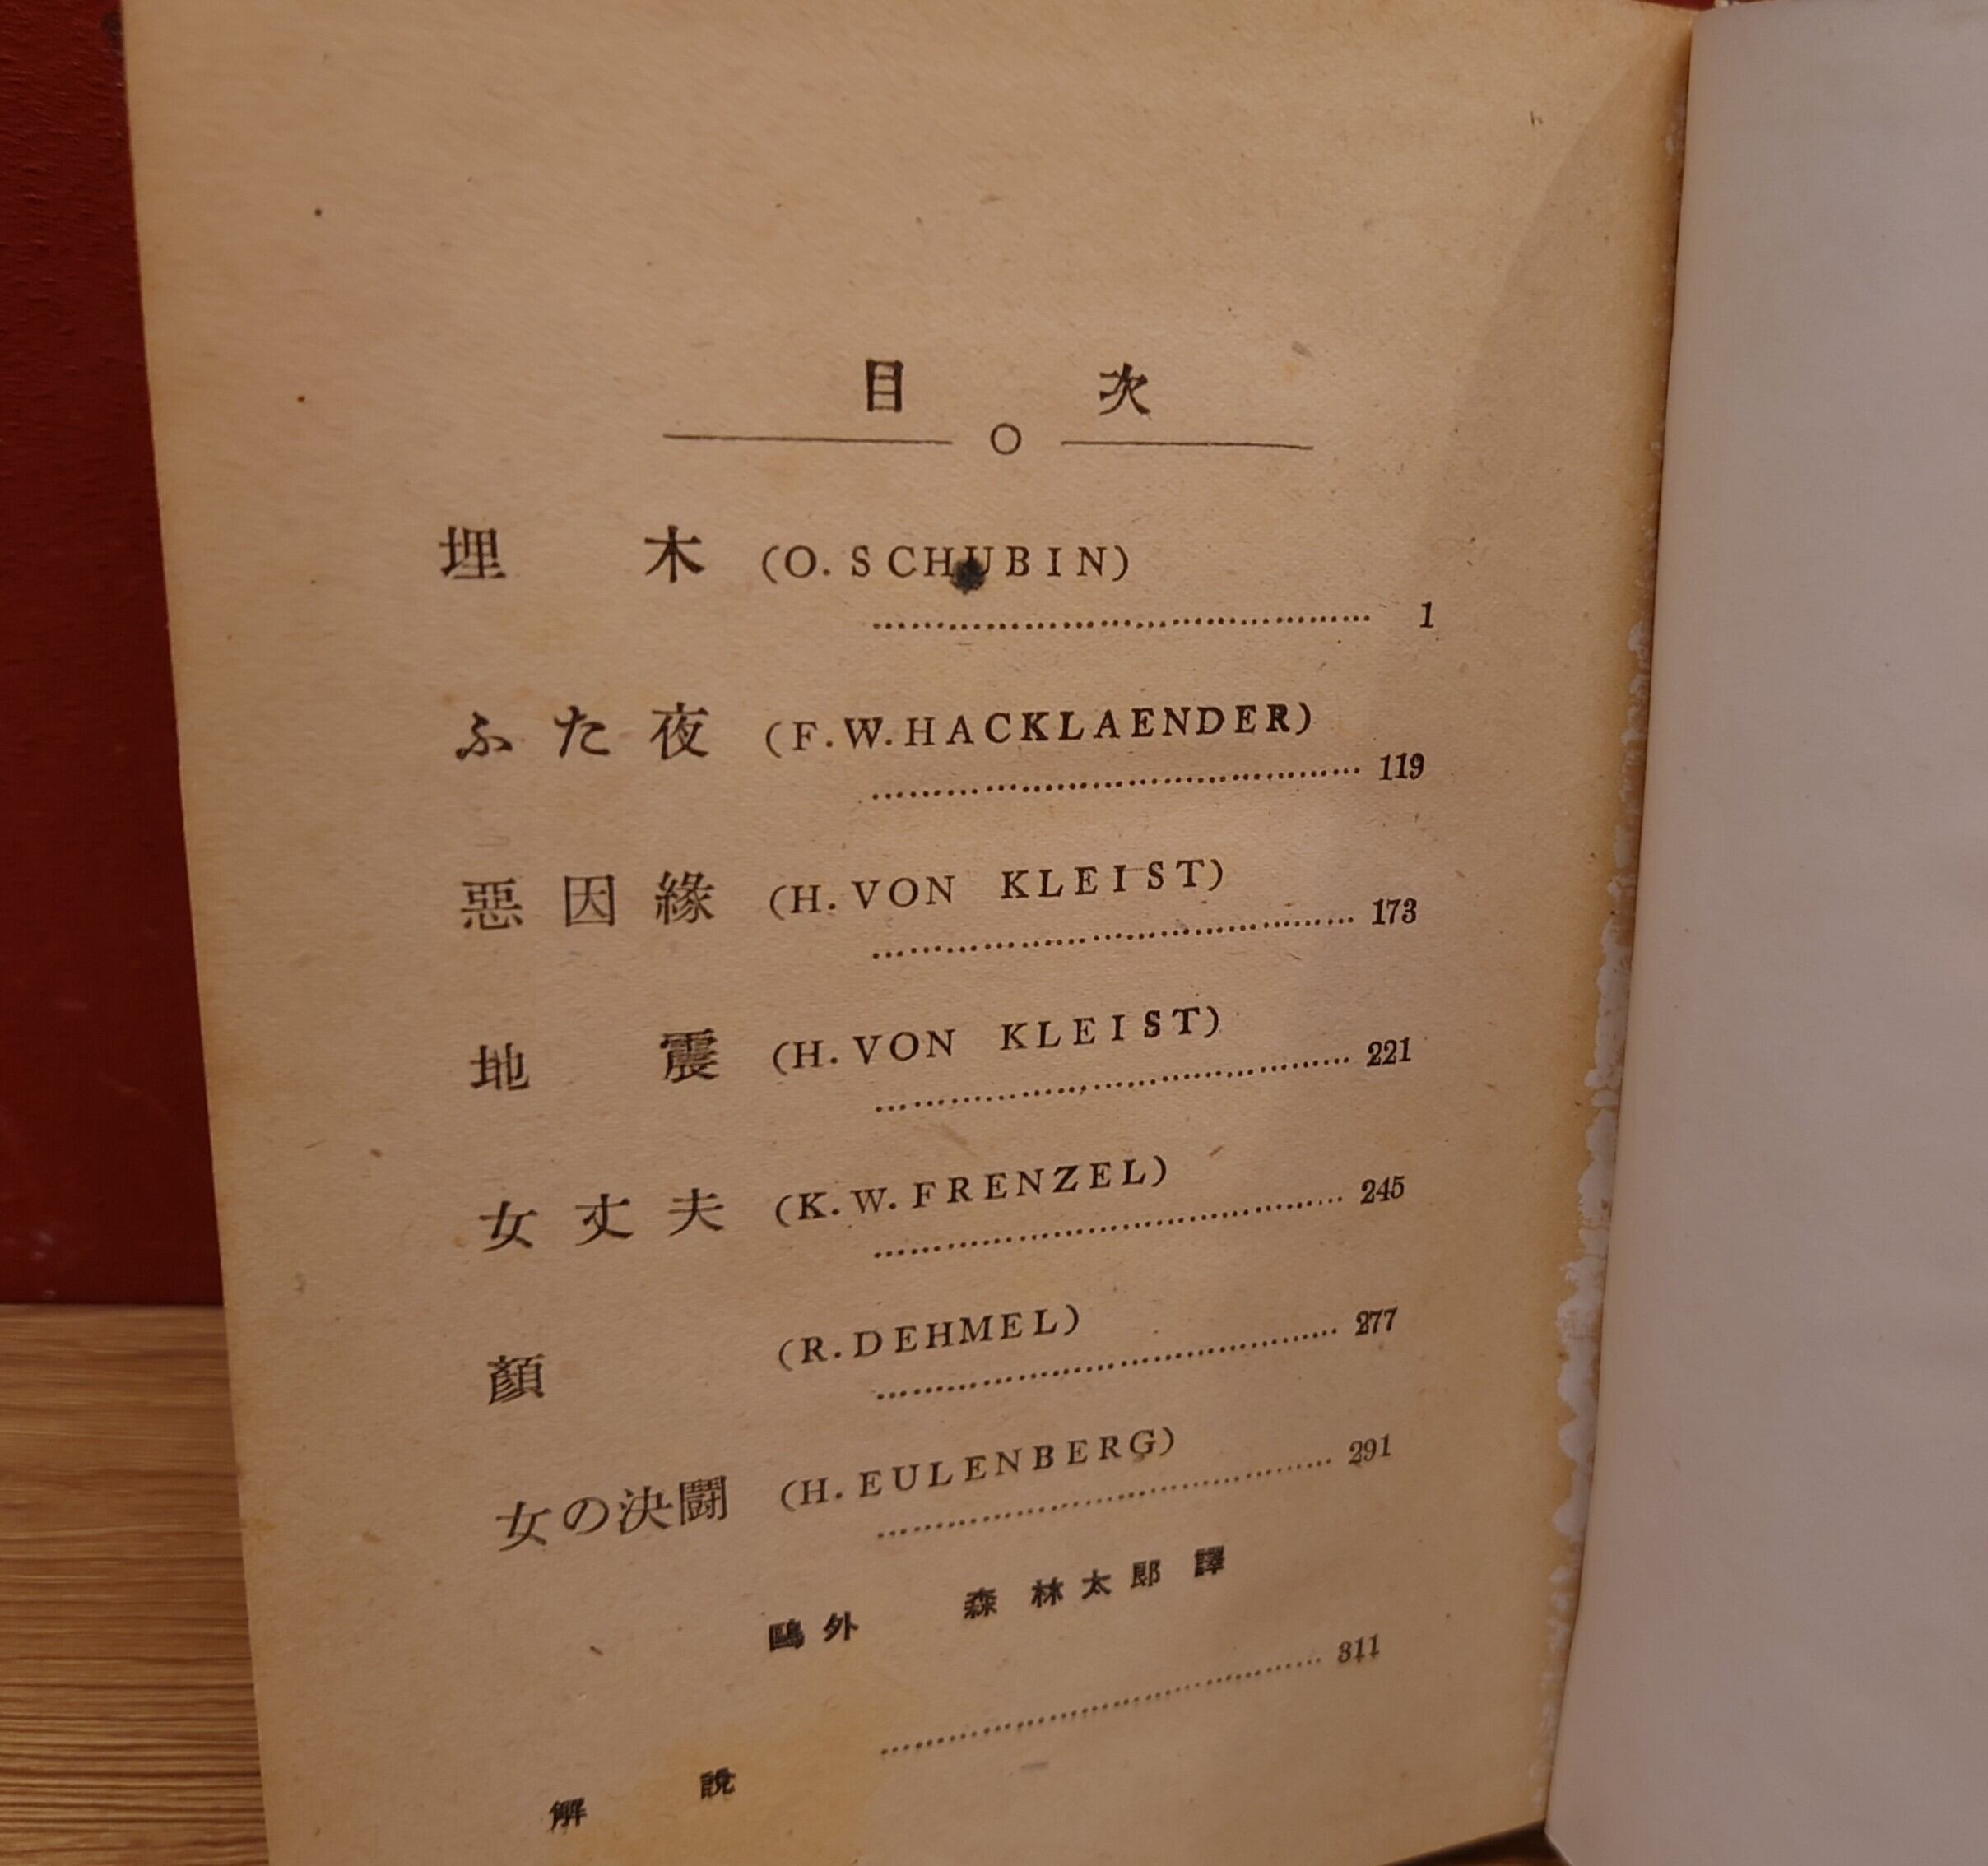 目次
埋木 (O. SCHUBIN)
……………………………… 1
ふた夜 (F.W.HACKLAENDER)
……………………………… 119
惡因緣 (H. VON KLEIST)
……………………………… 173
地震 (H. VON KLEIST)
……………………………… 221
女丈夫 (K.W.FRENZEL)
……………………………… 245
顏 (R.DEHMEL)
……………………………… 277
女の決鬪 (H. EULENBERG)
……………………………… 291
鷗外 森林太郞譯
解說 ……………………………… 311